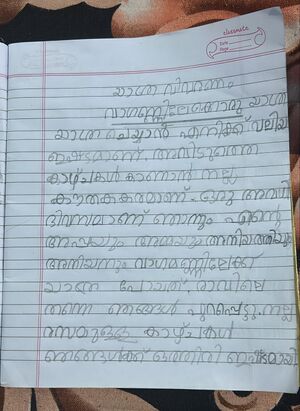 classmate
Date
Page
യാത്ര വിവരണം
വാഗമണ്ണിലേക്കൊരു യാത്ര
യാത്ര ചെയ്യാൻ എനിക്ക് വലിയ
ഇഷ്ടമാണ്. അവിടുത്തെ
കാഴ്ചകൾ കാണാൻ നല്ല
കൗതുകകരമാണ്. ഒരു അവധി
ദിവസമാണ് ഞാനും എന്റെ
അപ്പയും അമ്മയും അനിയത്തിയും
അനിയനും വാഗമണ്ണിലേക്ക്
യാത്ര പോയത്. രാവിലെ
തന്നെ ഞങ്ങൾ പുറപ്പെട്ടു. നല്ല
രസമുള്ള കാഴ്ചകൾ
ഞങ്ങൾക്ക് ഒത്തിരി ഇഷ്ടമായി